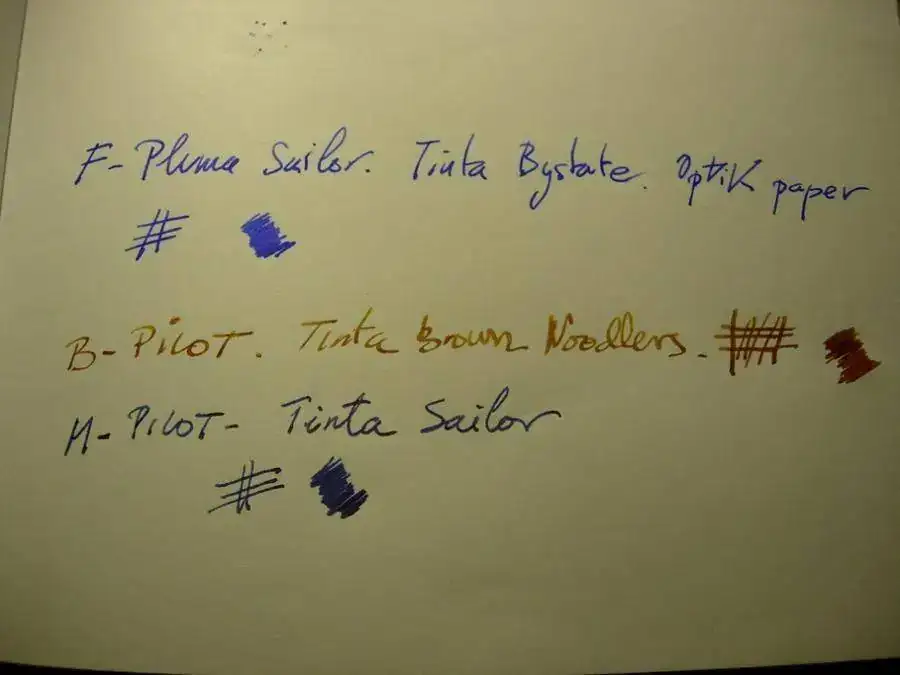 F- Pluma Sailor. Tinta Bystate. Optik paper
B- Pilot. Tinta Brown Noodlers.
M- Pilot- Tinta Sailor